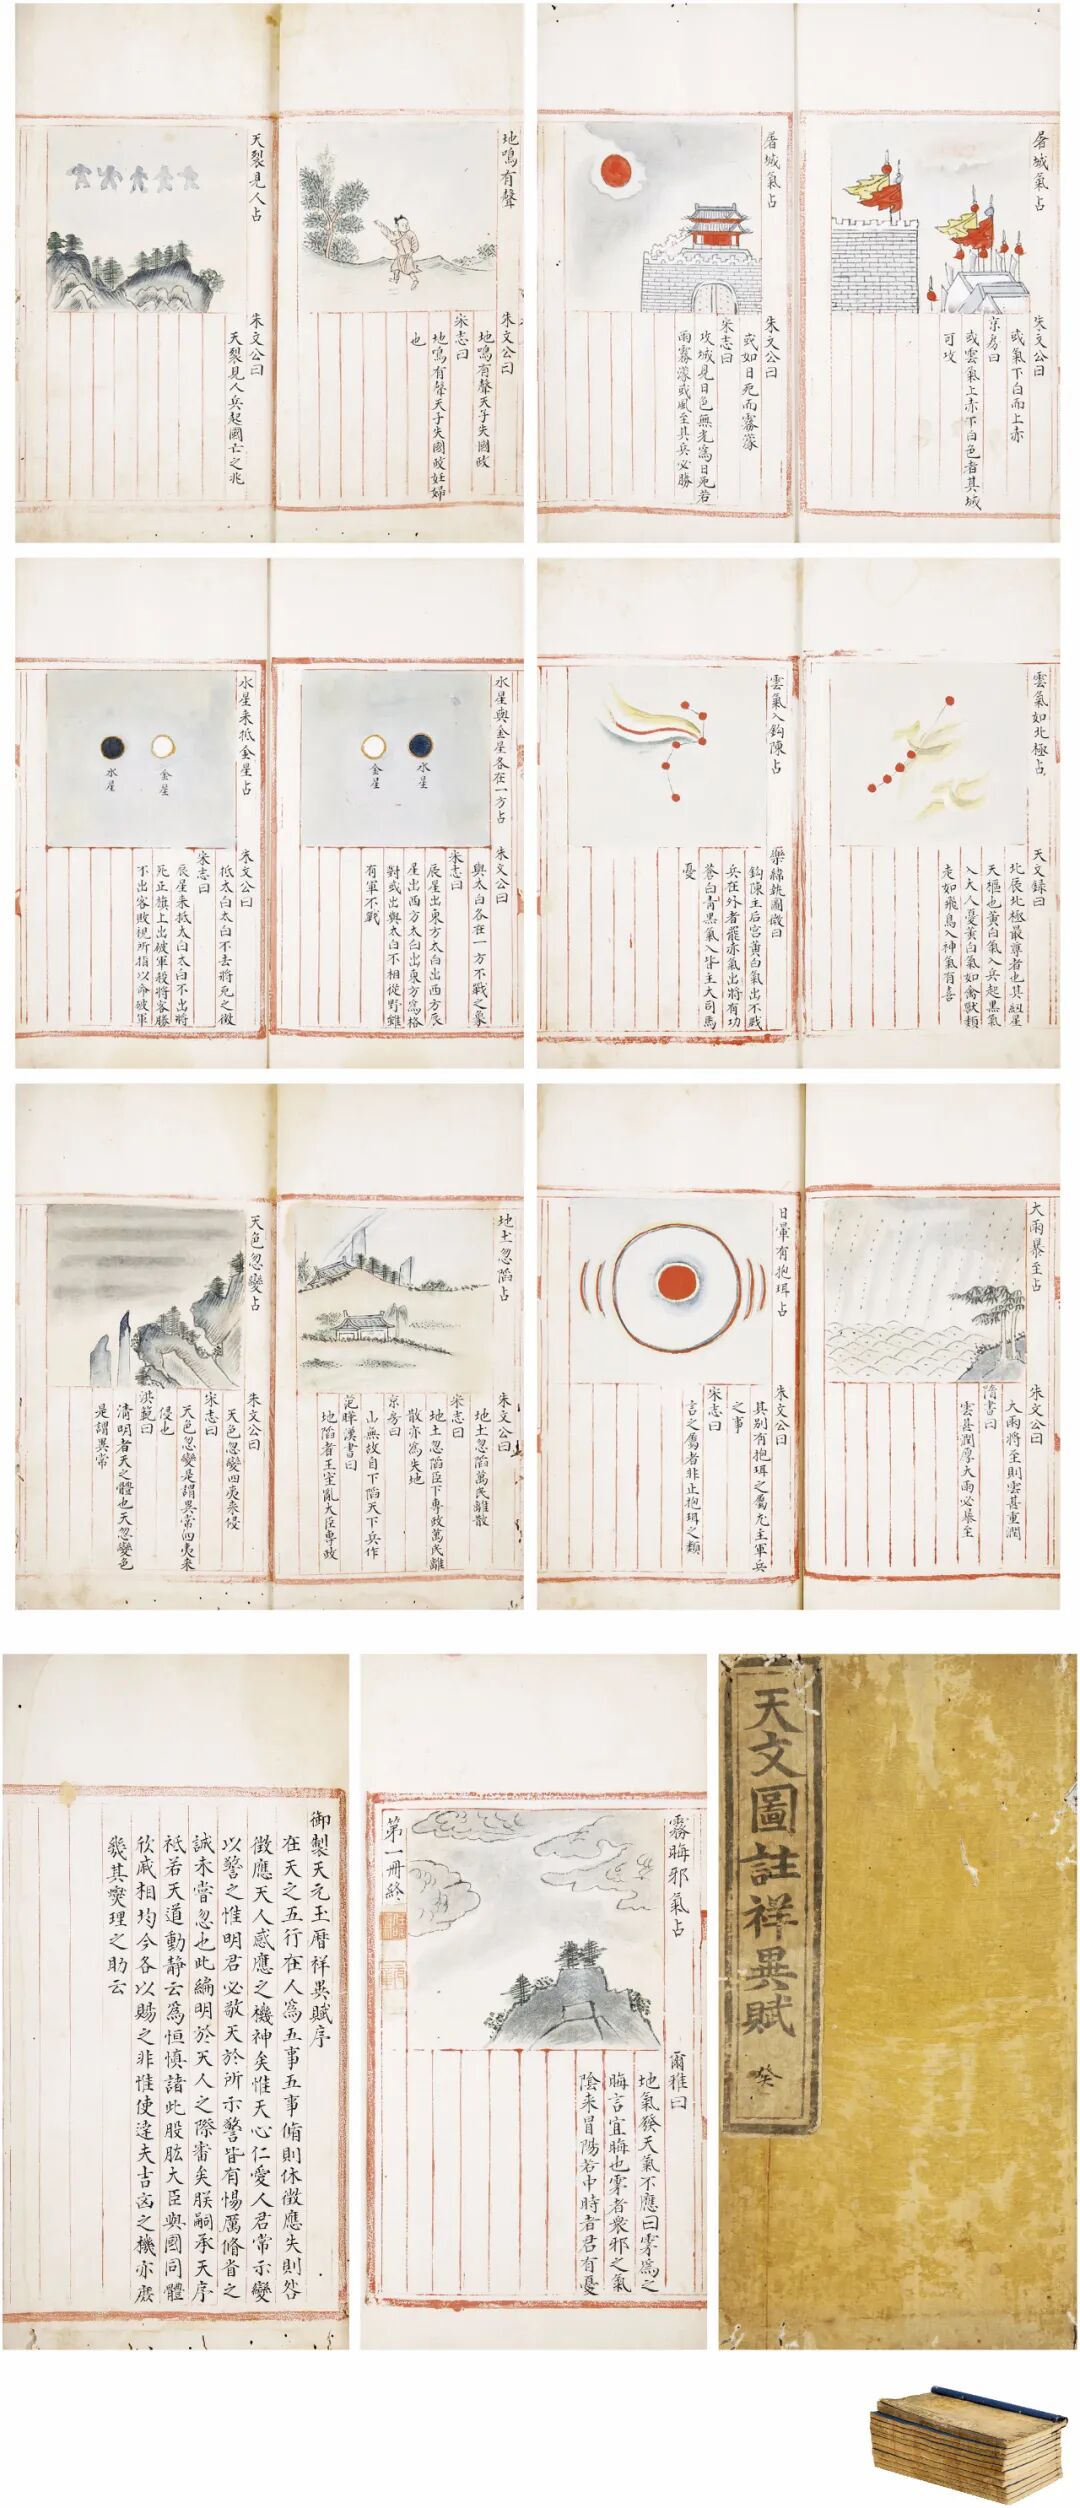 地鳴有聲
朱文公曰
地鳴有聲天子失國政
宋志曰
地鳴有聲天子失國政妊婦
也
天裂見人占
朱文公曰
天裂見人兵起國亡之兆
屠城氣占
朱文公曰
或氣下白而上赤
京房曰
或雲氣上赤下白色者其城
可攻
屠城氣占
朱文公曰
或如日死而霧濛
宋志曰
攻城見日色無光為日死若
雨霧濛或風至其兵必勝
水星與金星各在一方占
金星
水星
朱文公曰
與太白各在一方不戰之象
宋志曰
辰星出東方太白出西方辰
星出西方太白出東方為格
對或出與太白不相從野雖
有軍不戰
水星來抵金星占
水星
金星
朱文公曰
抵太白太白不去將死之徵
宋志曰
辰星來抵太白太白不出將
死正旗上出破軍殺將客勝
不出客敗視所指以命破軍
雲氣如北極占
天文錄曰
北辰北極最尊者也其紐星
天樞也黃白氣入兵起黑氣
入大人憂黃白氣如禽獸類
走如飛鳥入神氣有喜
雲氣入鈎陳占
樂緯執圖徵曰
鈎陳主后宮黃白氣出不戰
兵在外者罷赤氣出將有功
蒼白青黑氣入皆主大司馬
憂
地土忽陷占
朱文公曰
地土忽陷萬民離散
宋志曰
地土忽陷臣下專政萬民離
散亦為失地
京房曰
山無故自下陷天下兵作
范曄漢書曰
地陷者王室亂大臣專政
天色忽變占
朱文公曰
天色忽變四夷來侵
宋志曰
天色忽變是謂異常四夷來
侵也
洪範曰
清明者天之體也天忽變色
是謂異常
大雨暴至占
朱文公曰
大雨將至則雲甚重潤
隋書曰
雲甚潤厚大雨必暴至
日暈有抱珥占
朱文公曰
其別有抱珥之屬尤主軍兵
之事
宋志曰
言之屬者非止抱珥之類
御製天元玉曆祥異賦序
在天之五行在人為五事五事脩則休徵應失則咎
徵應天人感應之機神矣惟天心仁愛人君常示變
以警之惟明君必敬天於所示警皆有惕厲脩省之
誠未嘗忽也此編明於天人之際審矣朕嗣承天序
祗若天道動靜云為恒慎諸此股肱大臣與國同體
欣戚相均今各以賜之非惟使達夫吉凶之機亦庶
幾其爕理之助云
霧晦邪氣占
爾雅曰
地氣發天氣不應曰雺為之
晦言宜晦也雺者衆邪之氣
陰来冒陽若中時者君有憂
第一冊終
天文圖註祥異賦
癸